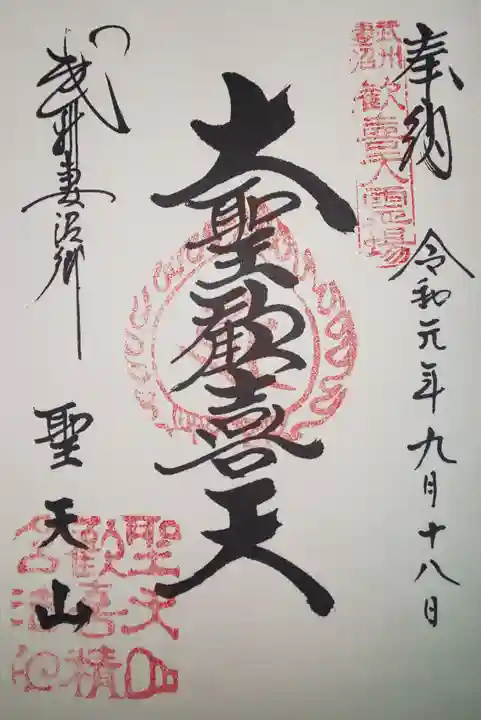 奉納
令和元年九月十八日
武州妻沼
歓喜天霊場
大聖歓喜天
武州妻沼郷
聖天山
聖天山
歓喜